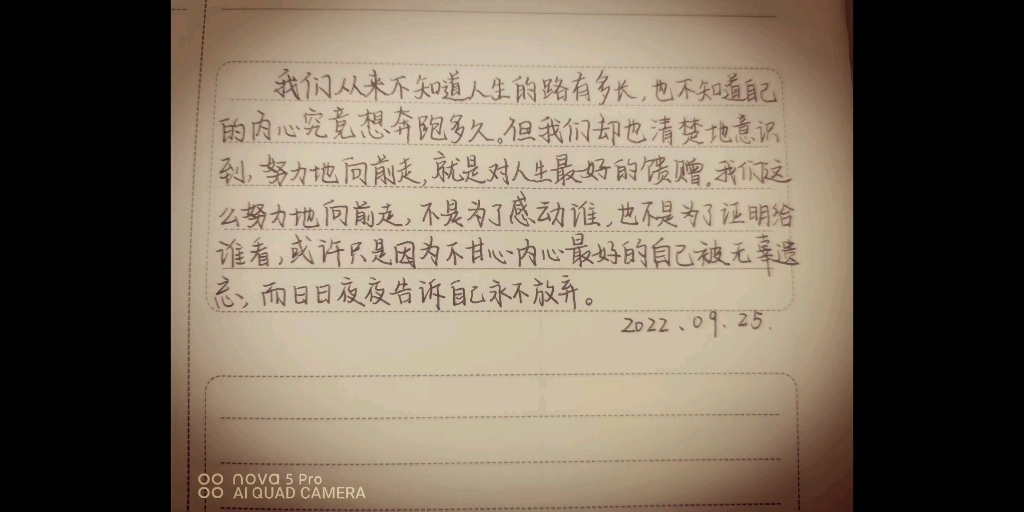 我们从来不知道人生的路有多长,也不知道自己
的内心究竟想奔跑多久。但我们却也清楚地意识
到,努力地向前走,就是对人生最好的馈赠。我们这
么努力地向前走,不是为了感动谁,也不是为了证明给
谁看,或许只是因为不甘心内心最好的自己被无辜遗
忘,而日日夜夜告诉自己永不放弃。
2022、09.25.
nova 5 Pro
AI QUAD CAMERA